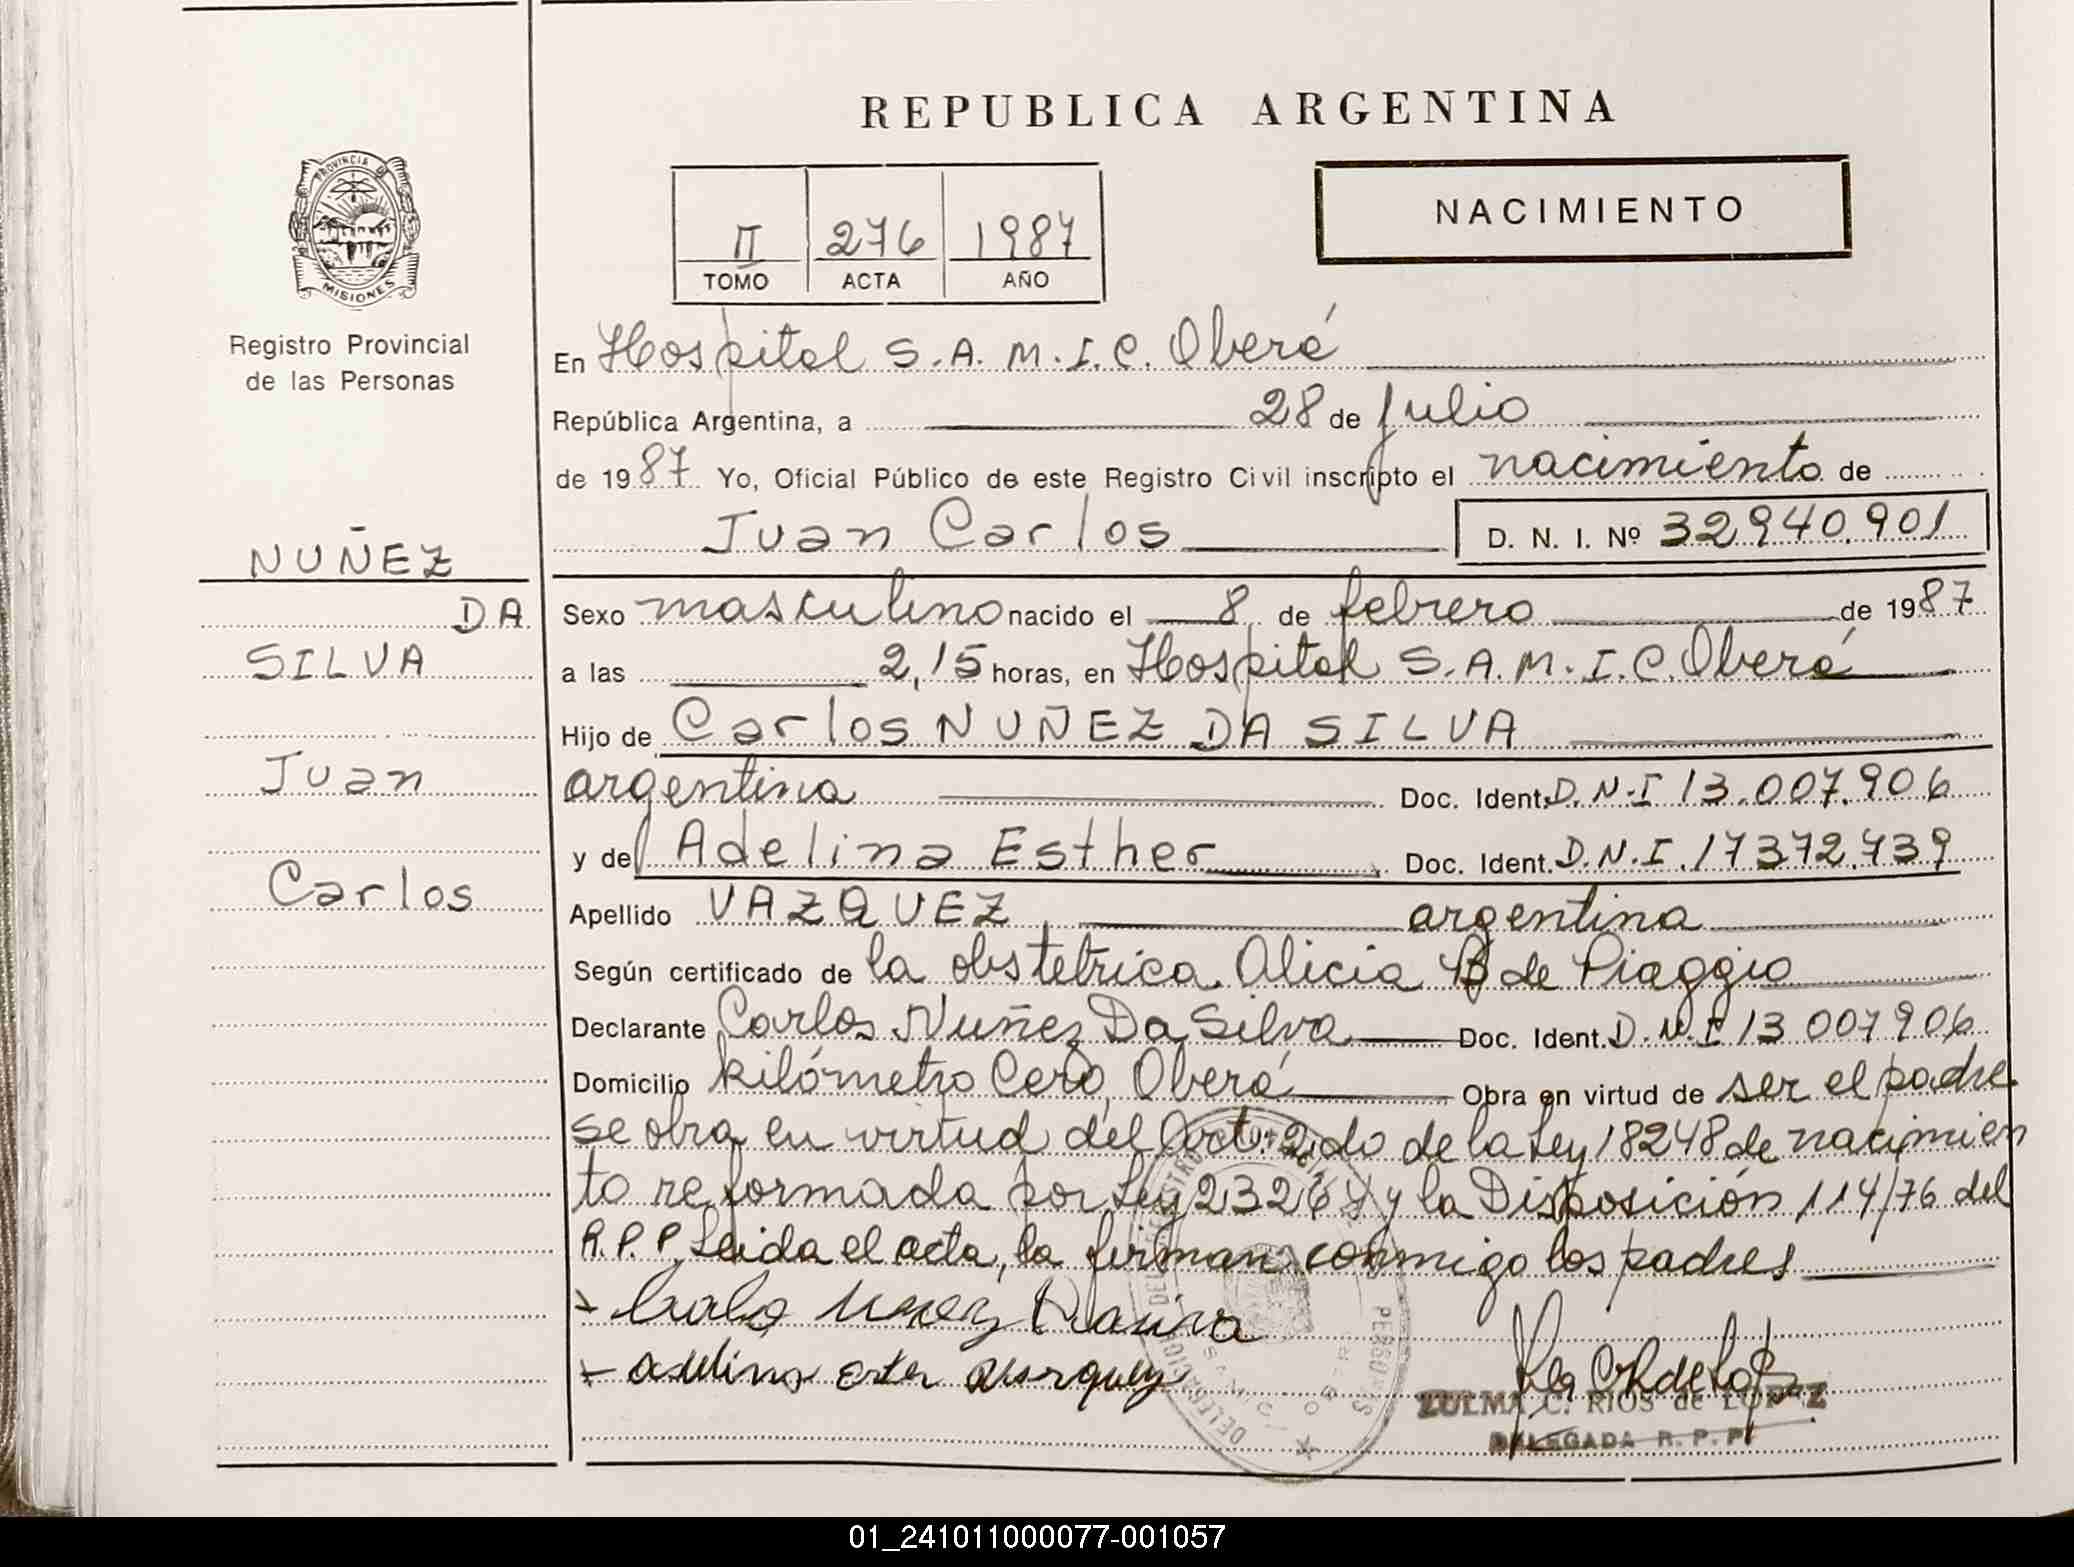 REPUBLICA ARGENTINA
PROVINCIA DE
MISIONES
Registro Provincial
de las Personas
II 276 1987
TOMO ACTA AÑO
NACIMIENTO
NUÑEZ
DA
SILVA
Juan
Carlos
En Hospital S.A.M.I.C. Oberá
República Argentina, a 28 de julio
de 1987 Yo, Oficial Público de este Registro Civil inscripto el nacimiento de
Juan Carlos D. N. I. Nº 32.940.901
Sexo masculino nacido el 8 de febrero de 1987
a las 2,15 horas, en Hospital S.A.M.I.C. Oberá
Hijo de Carlos NUÑEZ DA SILVA
argentina Doc. Ident. D.N.I 13.007.906
y de Adelina Esther Doc. Ident. D.N.I. 17372.739
Apellido VAZQUEZ argentina
Según certificado de la obstetrica. Alicia B de Piaggio
Declarante Carlos Nuñez Da Silva Doc. Ident. D.N.I 13 007906
Domicilio kilómetro Cero, Oberá Obra en virtud de ser el padre
se obra en virtud del Art: 2do de la Ley 18248 de nacimien
to reformada por Ley 23264 y la Disposición 114/76 del
R.P.P. Leida el acta, la firman conmigo los padres
ZULMA C. RIOS de LOPEZ
DELEGADA R. P. P.
01_241011000077-001057